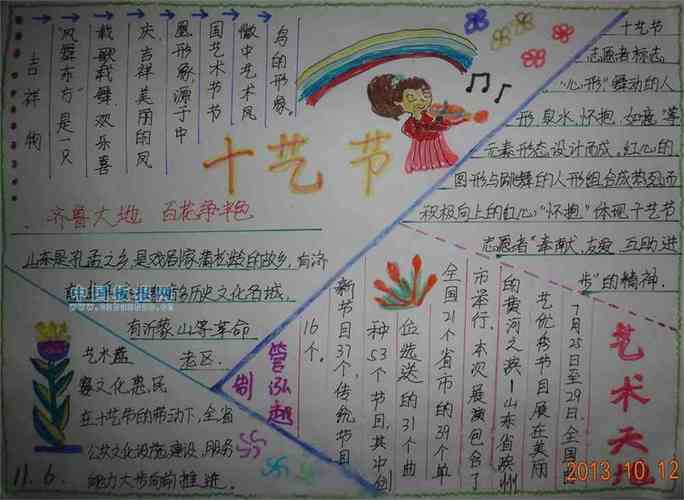 吉祥物
“凤舞东方”是一只
载歌载舞、欢乐喜
庆、吉祥美丽的凤
凰形象源于中
国艺术节节
徽中艺术凤
鸟的形象。
十艺节
齐鲁大地 百花争艳
山东是孔孟之乡,是戏剧家蒲松龄的故乡,有济
历史文化名城,
有沂蒙山等革命
老区.
艺术盛
赛文化惠民
在十艺节的带动下,全省
公共文化设施建设、服务
能力大步向前推进.
11.6.
十艺节
志愿者标志
“心形”舞动的人
形,泉水,怀抱,如意”等
元素形态设计而成,红心的
图形与跳舞的人形组合成热烈而
积极向上的红心“怀抱”体现十艺节
志愿者“奉献,友爱,互助,进
步”的精神.
艺术天地
7月25日至29日,全国
艺优秀节目展在美丽
的黄河之滨—山东省滨州
市举行。本次展演包含了
全国21个省市的39个单
位选送的31个曲
种53个节目,其中创
新节目37个,传统节目
16个。
制
中国板报网
2013.10.12